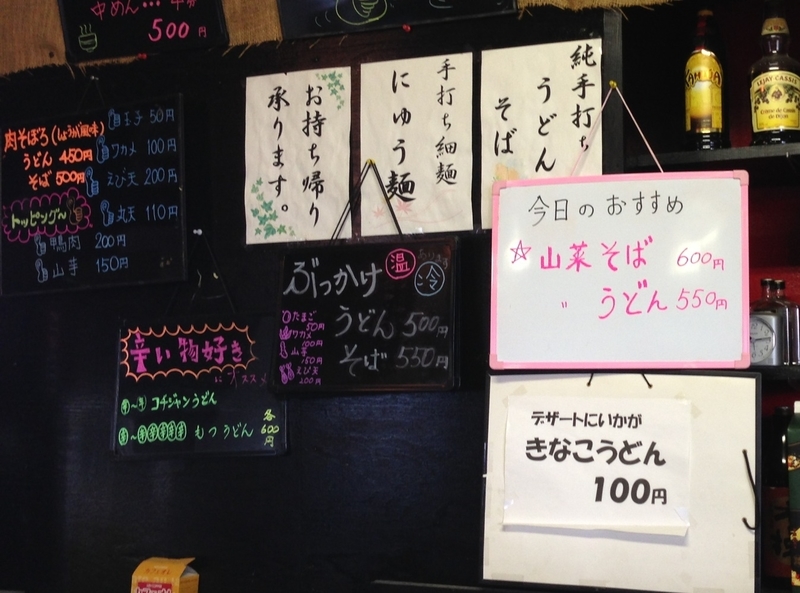 中めん...
500
肉そぼろ(しょうが風味)
うどん 450円
そば 500円
トッピング〜
玉子 50円
ワカメ 100円
えび天 200円
丸天 110円
鴨肉 200円
山芋 150円
お持ち帰り
承ります。
手打ち細麺
にゅう麺
純手打ち
うどん
そば
辛い物好き
にオススメ
コチジャンうどん
もつうどん
各600円
ぶっかけ 温 冷 あります
うどん 500円
そば 550円
たまご 50円
ワカメ 100円
山芋 150円
えび天 200円
今日のおすすめ
☆山菜そば 600円
〃 うどん 550円
デザートにいかが
きなこうどん
100円
KAHLUA
LEJAY CASSIS